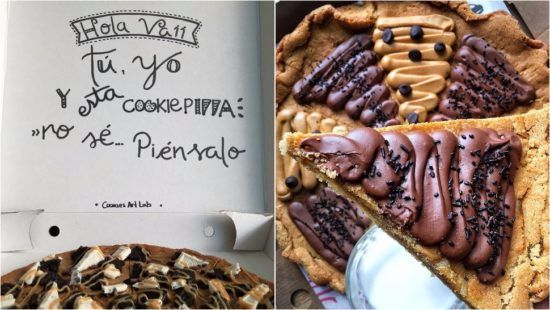 Hola Va11
Tú, yo
y esta COOKIEPIZZA
"no sé... Piénsalo
• Cookies Art Lab •